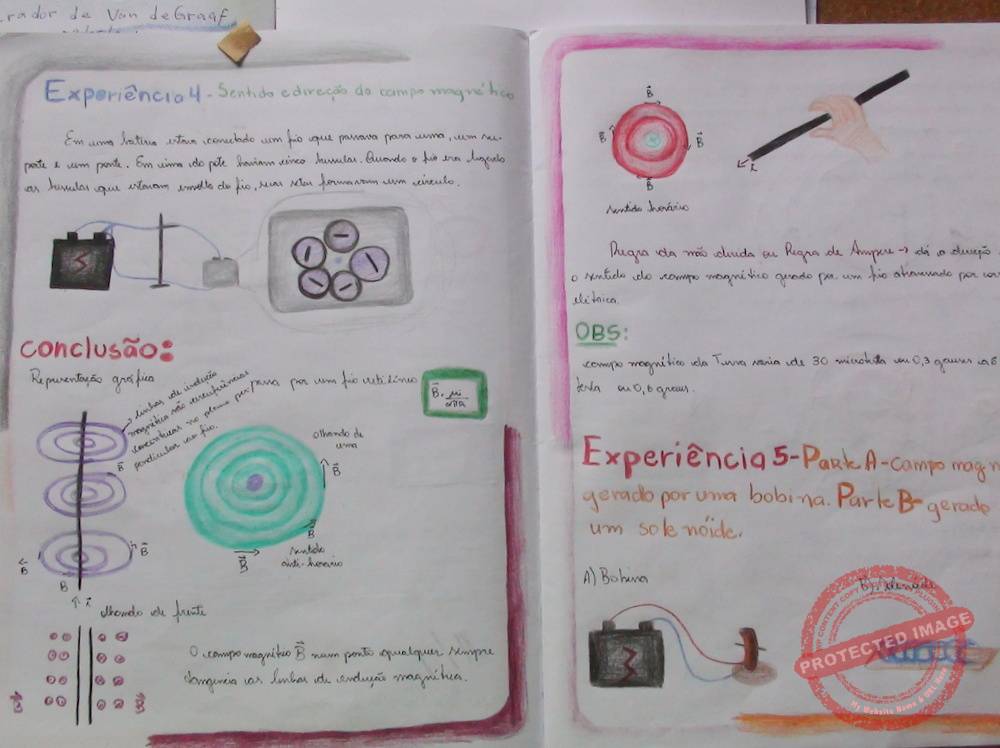 rador de Van de Graaf
Experiência 4 - Sentido e direção do campo magnético
Em uma bateria estava conectado um fio que passava para cima, um su-
porte e um pote. Em cima do pote haviam cinco bussulas. Quando o fio era ligado
as bussulas que estavam envolta do fio, suas setas formavam um circulo.
conclusão:
Representação gráfica
linhas de indução
magnética são circunferências
concêntricas no plano per
pendicular ao fio.
para por um fio retilíneo
B = μi
2πR
olhando de
cima
B
B
B
sentido
anti-horário
B
B
B
B
i
olhando de frente
O campo magnético B num ponto qualquer sempre
tangencia as linhas de indução magnética.
B
B
B
B
B
B
sentido horário
i
Regra da mão direita ou Regra de Ampere → dá a direção
o sentido do campo magnético gerado por um fio atravessado por cor
elétrica.
OBS:
campo magnético da Terra varia de 30 microtesla ou 0,3 gauss a 6
tesla ou 0,6 gauss.
Experiência 5 - Parte A - campo magn
gerado por uma bobina. Parte B - gerado
um sole nóide.
A) Bobina
B) Solenoide
PROTECTED IMAGE
My Website Name & URL Here